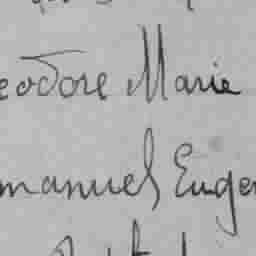 eodore Marie
manuel Eugen